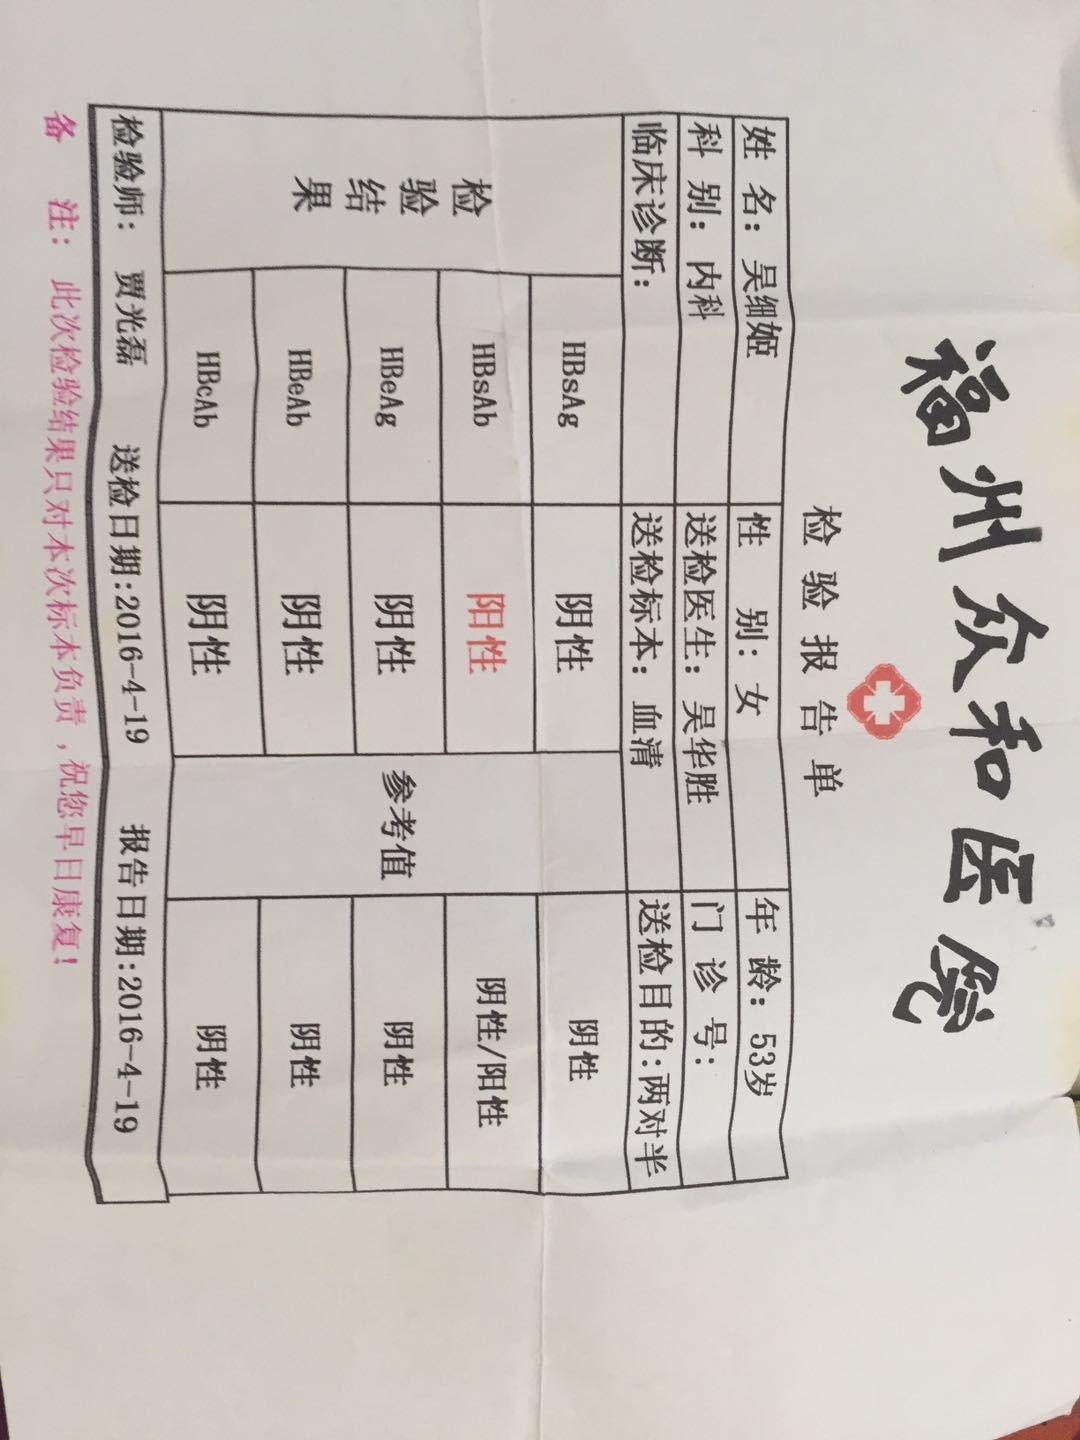 福州众和医院
检验报告单
姓 名：吴细姬 性 别：女 年 龄：53岁
科 别：内科 送检医生：吴华胜 门 诊 号：
临床诊断： 送检标本：血清 送检目的：两对半
检验结果 参考值
HBsAg 阴性 阴性
HBsAb 阳性 阴性/阳性
HBeAg 阴性 阴性
HBeAb 阴性 阴性
HBcAb 阴性 阴性
检验师： 贾光磊 送检日期:2016-4-19 报告日期:2016-4-19
备 注：此次检验结果只对本次标本负责,祝您早日康复!